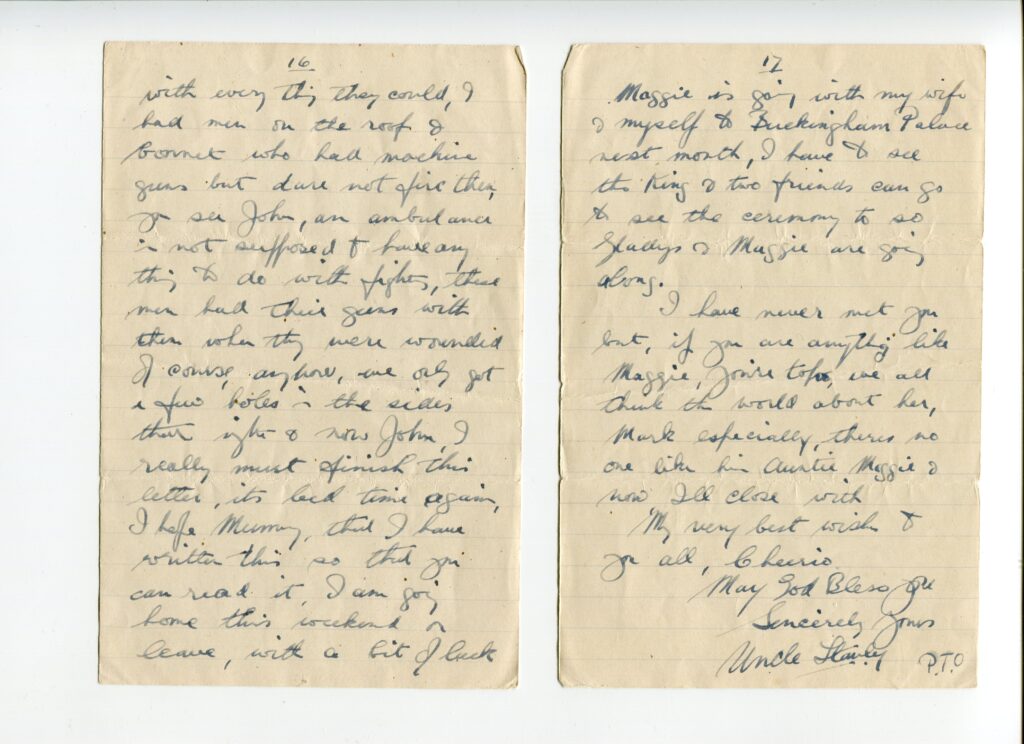 16
with every thig they could, I
had men on the roof &
bonnet who had machine
guns but dare not fire them,
you see John, an ambulance
is not supposed to have any
thig to do with fights, these
men had their guns with
them when they were wounded
of course, anyhow, we only got
a few holes in the sides
that night & now John, I
really must finish this
letter, its bed time again,
I hope Mummy, that I have
written this so that you
can read it, I am going
home this weekend on
leave, with a bit of luck
17
Maggie is going with my wife
& myself to Buckingham Palace
next month, I have to see
the King & two friends can go
to see the ceremony to so
Gladys & Maggie are going
along.
I have never met you
but, if you are anythig like
Maggie, you're tops, we all
think the world about her,
Mark especially, theres no
one like his Auntie Maggie &
now I'll close with
My very best wishes to
you all, Cheerio.
May God Bless you
Sincerely Yours
Uncle Stanley
P.T.O